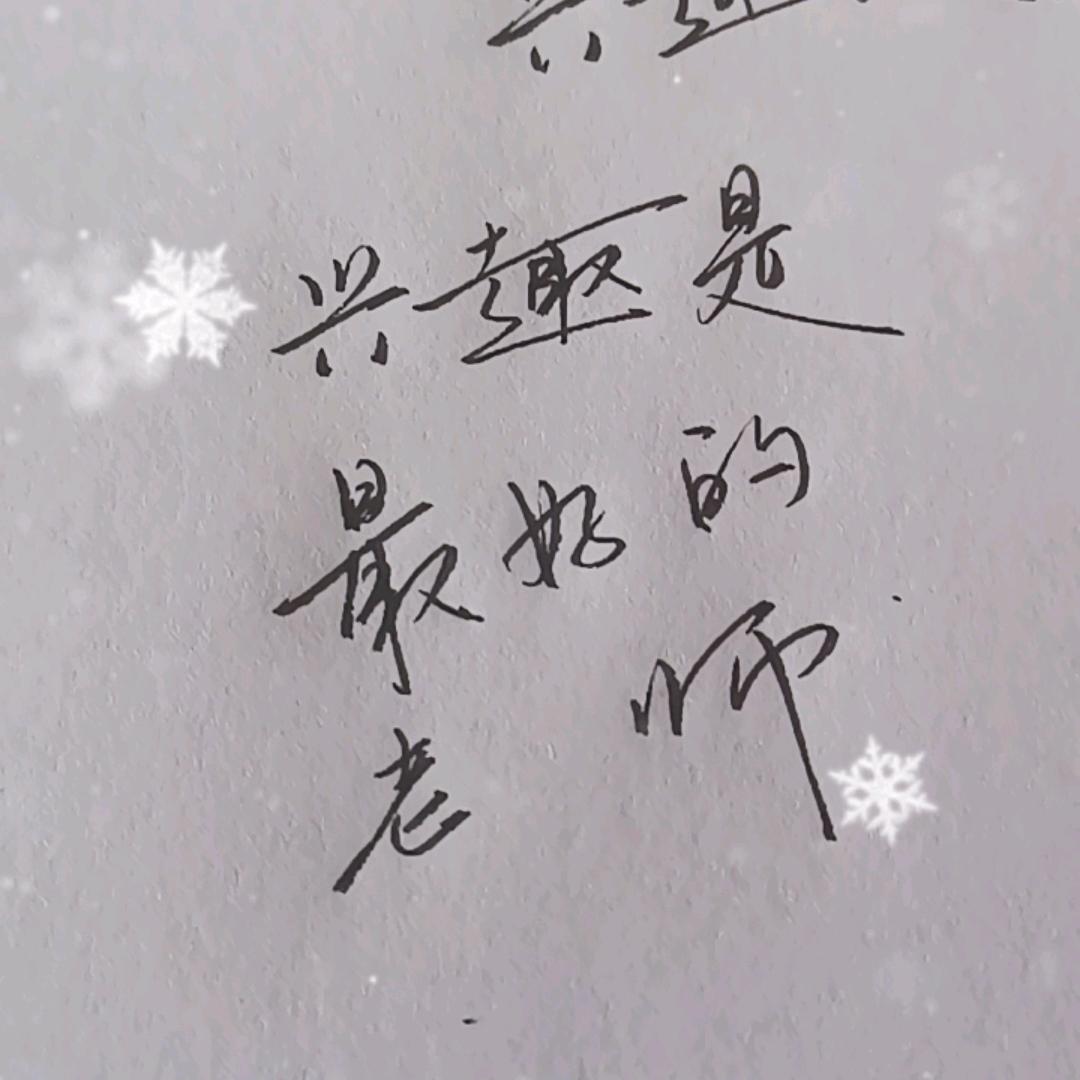 兴趣是
最好的
老师